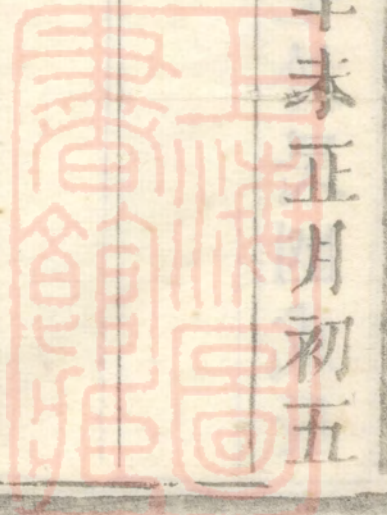 未正月初五
上海圖書館藏